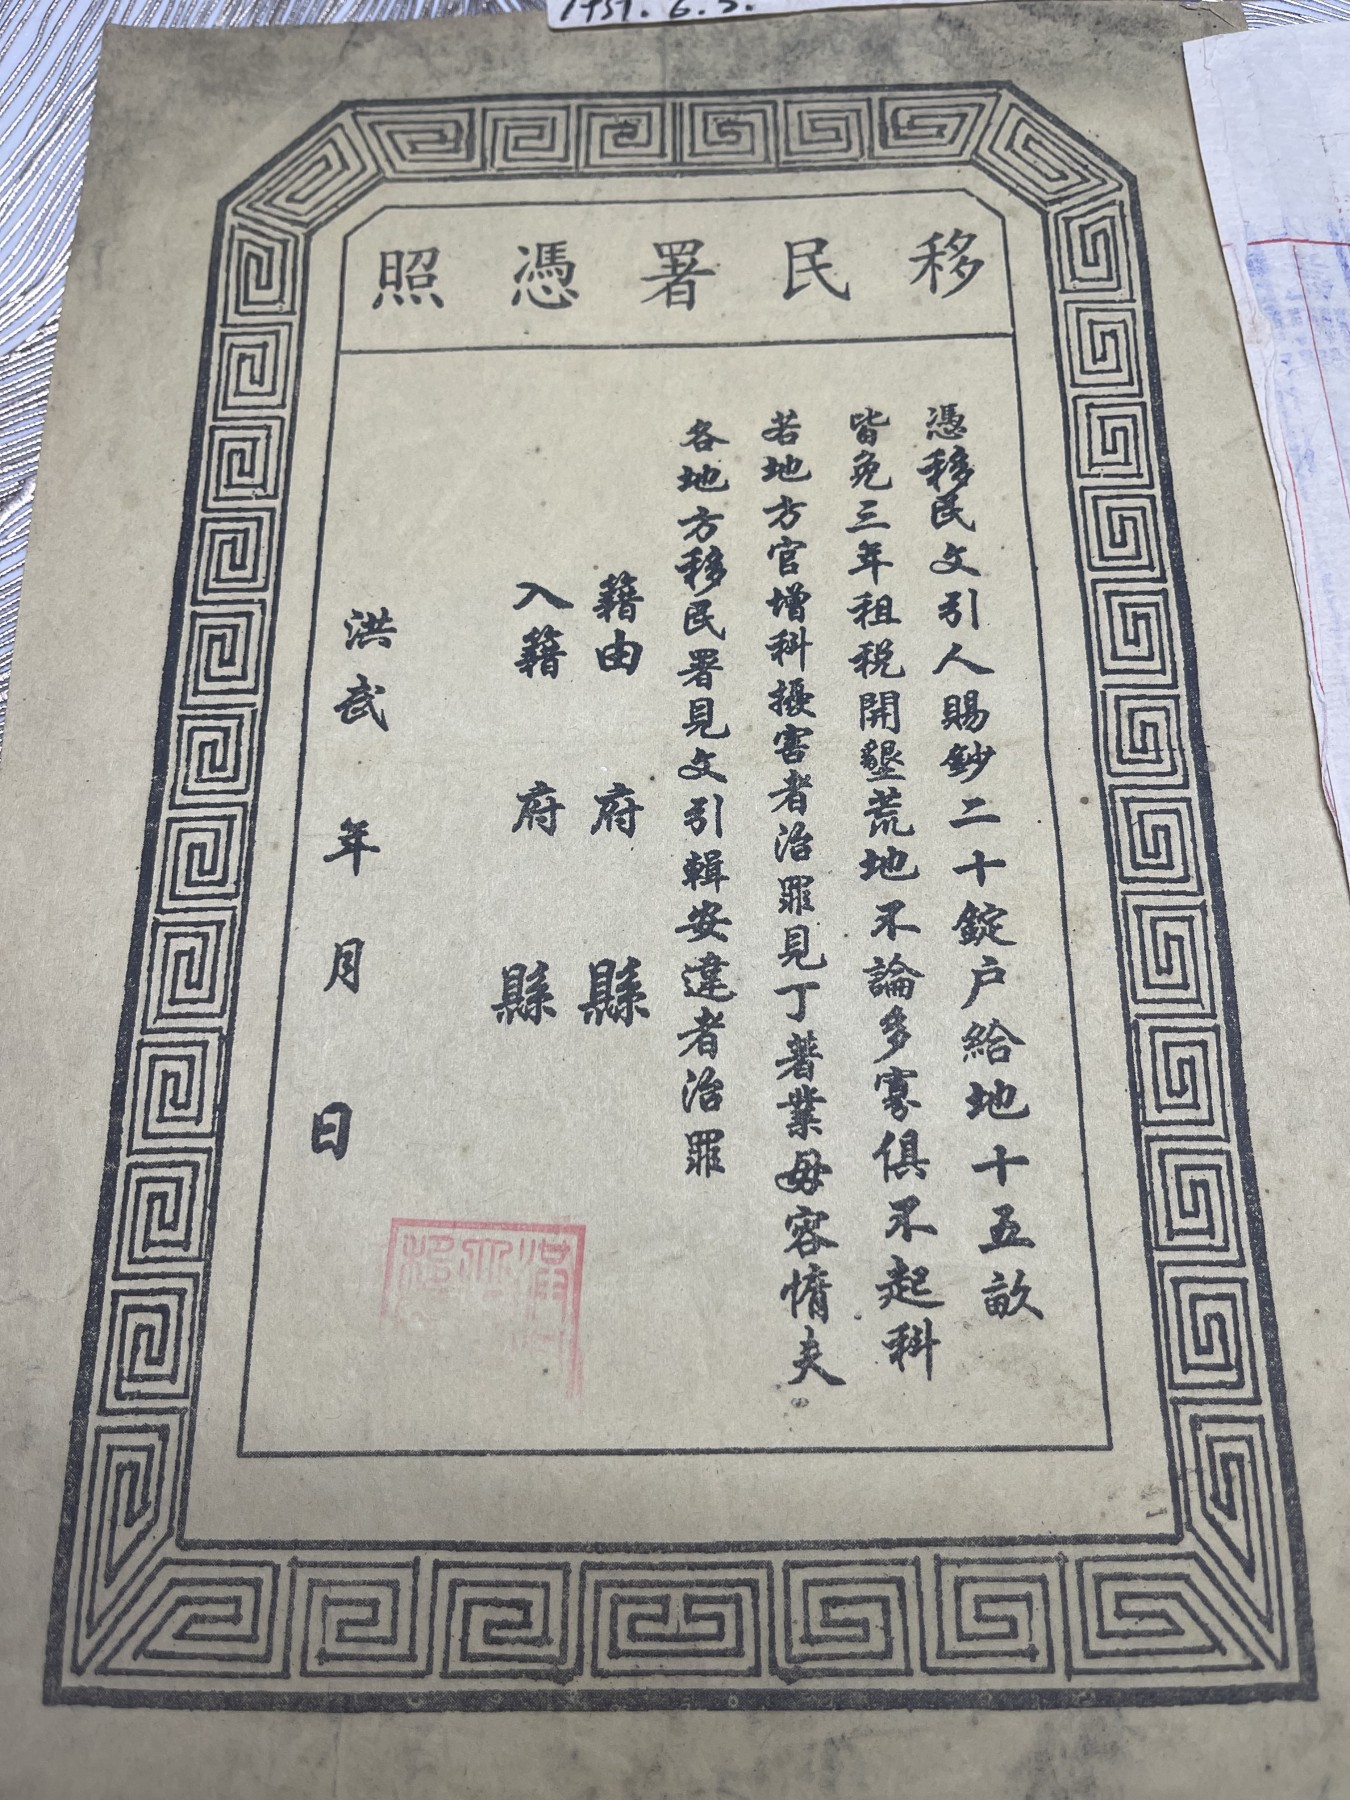 1951.6.5.
移民署憑照
憑移民文引人賜鈔二十錠户給地十五畝
皆免三年租税開墾荒地不論多寡俱不起科
若地方官增科擾害者治罪見丁著業毋容惰夫
各地方移民署見文引輯安違者治罪
籍由 府 縣
入籍 府 縣
洪武 年 月 日